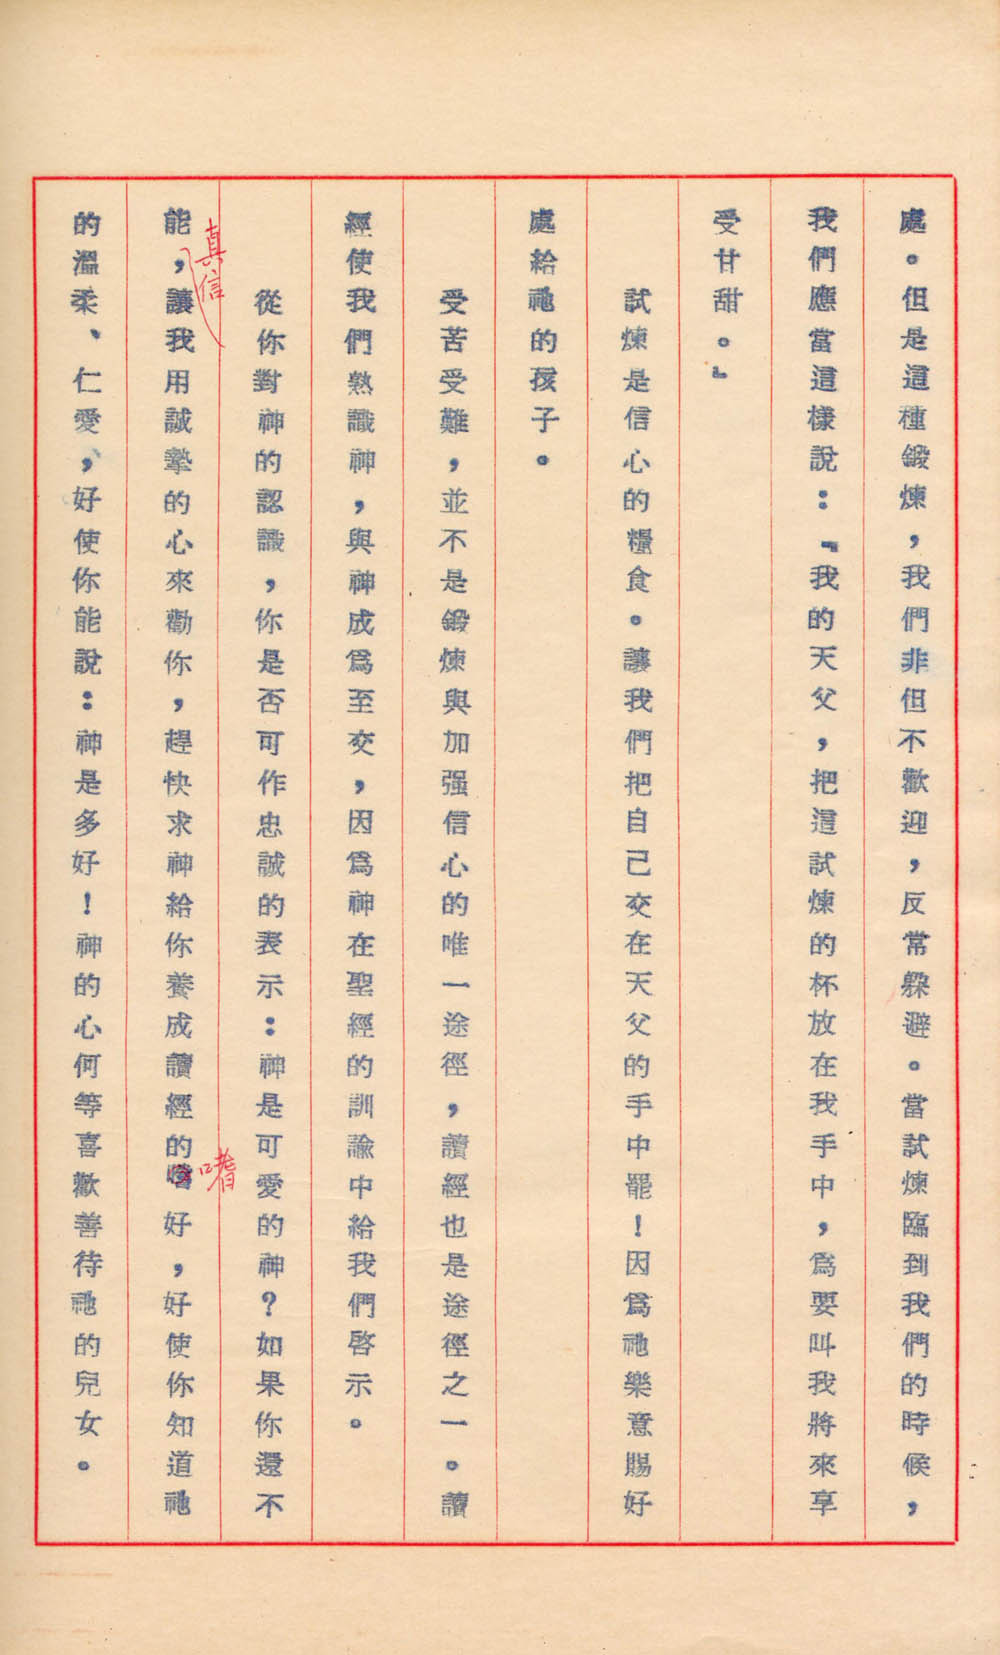 處。但是這種鍛煉，我們非但不歡迎，反常躱避。當試煉臨到我們的時候，
我們應當這樣說：『我的天父，把這試煉的杯放在我手中，爲要叫我將來享
受甘甜。』
試煉是信心的糧食。讓我們把自己交在天父的手中罷！因爲祂樂意賜好
處給祂的孩子。
受苦受難，並不是鍛煉與加强信心的唯一途徑，讀經也是途徑之一。讀
經使我們熟識神，與神成爲至交，因爲神在聖經的訓諭中給我們啓示。
從你對神的認識，你是否可作忠誠的表示：神是可愛的神？如果你還不
真信
能，讓我用誠摯的心來勸你，趕快求神給你養成讀經的嗜好，好使你知道祂
嗜
的溫柔、仁愛，好使你能說：神是多好！神的心何等喜歡善待祂的兒女。